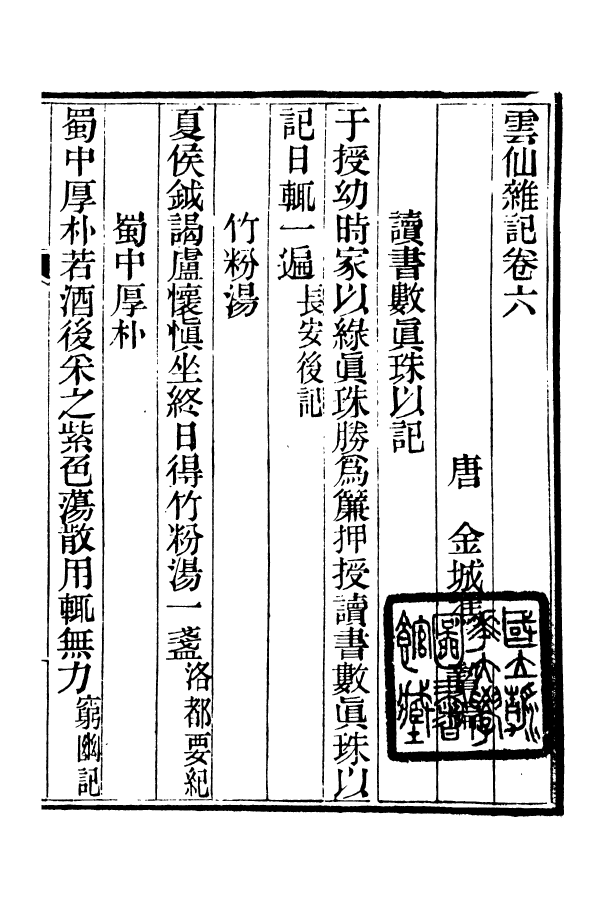 雲仙雜記卷六
唐　金城馮贄
讀書數眞珠以記
于授幼時家以綠眞珠勝爲簾押授讀書數眞珠以
記日輒一遍長安後記
竹粉湯
夏侯鉞謁盧懷愼坐終日得竹粉湯一盞洛都要紀
蜀中厚朴
蜀中厚朴若酒後釆之紫色蕩散用輒無力窮幽記
國立
大學
圖書
館藏